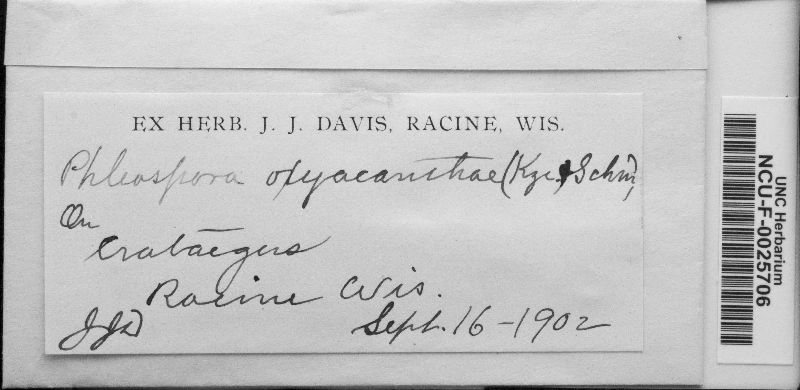 EX HERB. J. J. DAVIS, RACINE, WIS.
Phleospora oxyacanthae (Kze & Schm)
On
Crataegus
Racine Wis.
JJD Sept. 16-1902
UNC Herbarium
NCU-F-0025706